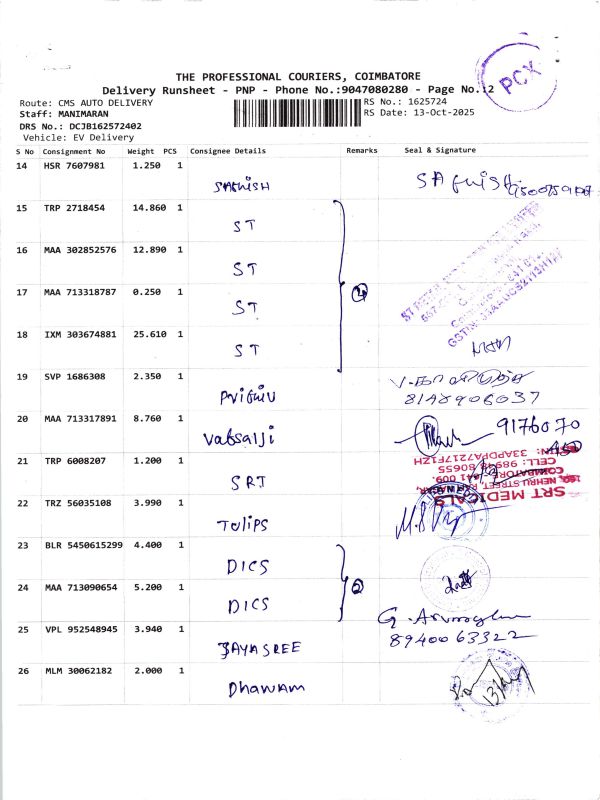 PCX
THE PROFESSIONAL COURIERS, COIMBATORE
Delivery Runsheet - PNP - Phone No.:9047080280 - Page No.:2
Route: CMS AUTO DELIVERY RS No.: 1625724
Staff: MANIMARAN RS Date: 13-Oct-2025
DRS No.: DCJB162572402
Vehicle: EV Delivery
S No Consignment No Weight PCS Consignee Details Remarks Seal & Signature
14 HSR 7607981 1.250 1 SAthISH SAthISH
15 TRP 2718454 14.860 1 ST
16 MAA 302852576 12.890 1 ST
17 MAA 713318787 0.250 1 ST 4
18 IXM 303674881 25.610 1 ST
19 SVP 1686308 2.350 1
8148906037
20 MAA 713317891 8.760 1 Vatsalji 9176070
21 TRP 6008207 1.200 1 SRT
SRT MEDICALS
NEHRU STREET, RAM NAGAR,
COIMBATORE-641 009.
CELL: 98948 80655
GSTIN: 33APOPA7217F1ZH
22 TRZ 56035108 3.990 1 Tulips
23 BLR 5450615299 4.400 1 DICS
2
24 MAA 713090654 5.200 1 DICS
25 VPL 952548945 3.940 1 JAYASREE
8940063322
26 MLM 30062182 2.000 1 Dhawam